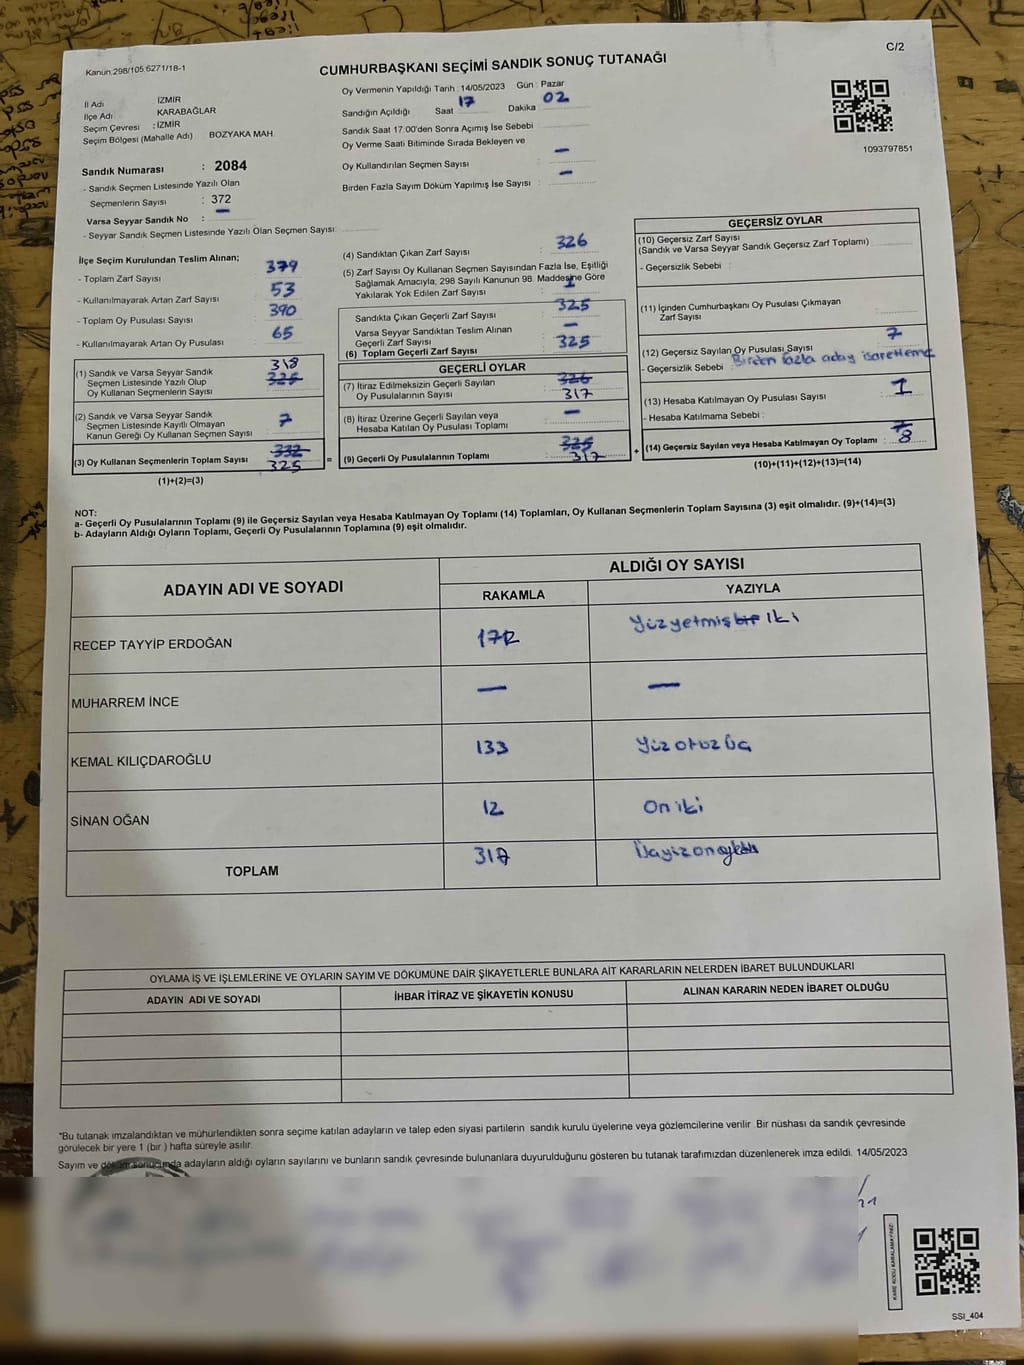 C/2
Kanun.298/105.6271/18-1
CUMHURBAŞKANI SEÇİMİ SANDIK SONUÇ TUTANAĞI
İl Adı : İZMİR
İlçe Adı : KARABAĞLAR
Seçim Çevresi : İZMİR
Seçim Bölgesi (Mahalle Adı) BOZYAKA MAH.
Sandık Numarası : 2084
- Sandık Seçmen Listesinde Yazılı Olan
Seçmenlerin Sayısı : 372
Varsa Seyyar Sandık No : —
- Seyyar Sandık Seçmen Listesinde Yazılı Olan Seçmen Sayısı:
Oy Vermenin Yapıldığı Tarih : 14/05/2023 Gün : Pazar
Sandığın Açıldığı Saat 17 Dakika 02
Sandık Saat 17.00'den Sonra Açımış İse Sebebi :
Oy Verme Saati Bitiminde Sırada Bekleyen ve
Oy Kullandırılan Seçmen Sayısı : —
Birden Fazla Sayım Döküm Yapılmış İse Sayısı : —
1093797851
İlçe Seçim Kurulundan Teslim Alınan;
- Toplam Zarf Sayısı : 379
- Kullanılmayarak Artan Zarf Sayısı : 53
- Toplam Oy Pusulası Sayısı : 390
- Kullanılmayarak Artan Oy Pusulası : 65
(1) Sandık ve Varsa Seyyar Sandık
Seçmen Listesinde Yazılı Olup
Oy Kullanan Seçmenlerin Sayısı : 318 325
(2) Sandık ve Varsa Seyyar Sandık
Seçmen Listesinde Kayıtlı Olmayan
Kanun Gereği Oy Kullanan Seçmen Sayısı : 7
(3) Oy Kullanan Seçmenlerin Toplam Sayısı : 332 325 =
(1)+(2)=(3)
(4) Sandıktan Çıkan Zarf Sayısı : 326
(5) Zarf Sayısı Oy Kullanan Seçmen Sayısından Fazla İse, Eşitliği
Sağlamak Amacıyla, 298 Sayılı Kanunun 98. Maddesine Göre
Yakılarak Yok Edilen Zarf Sayısı : 1
Sandıkta Çıkan Geçerli Zarf Sayısı : 325
Varsa Seyyar Sandıktan Teslim Alınan
Geçerli Zarf Sayısı : —
(6) Toplam Geçerli Zarf Sayısı : 325
GEÇERLİ OYLAR
(7) İtiraz Edilmeksizin Geçerli Sayılan
Oy Pusulasının Sayısı : 326 317
(8) İtiraz Üzerine Geçerli Sayılan veya
Hesaba Katılan Oy Pusulası Toplamı : —
(9) Geçerli Oy Pusulalarının Toplamı : 325 317 +
GEÇERSİZ OYLAR
(10) Geçersiz Zarf Sayısı
(Sandık ve Varsa Seyyar Sandık Geçersiz Zarf Toplamı) :
- Geçersizlik Sebebi :
(11) İçinden Cumhurbaşkanı Oy Pusulası Çıkmayan
Zarf Sayısı :
(12) Geçersiz Sayılan Oy Pusulası Sayısı : 7
- Geçersizlik Sebebi : Birden fazla aday işaretleme
(13) Hesaba Katılmayan Oy Pusulası Sayısı : 1
- Hesaba Katılmama Sebebi :
(14) Geçersiz Sayılan veya Hesaba Katılmayan Oy Toplamı : 7 8
(10)+(11)+(12)+(13)=(14)
NOT:
a- Geçerli Oy Pusulalarının Toplamı (9) ile Geçersiz Sayılan veya Hesaba Katılmayan Oy Toplamı (14) Toplamları, Oy Kullanan Seçmenlerin Toplam Sayısına (3) eşit olmalıdır. (9)+(14)=(3)
b- Adayların Aldığı Oyların Toplamı, Geçerli Oy Pusulalarının Toplamına (9) eşit olmalıdır.
ADAYIN ADI VE SOYADI
ALDIĞI OY SAYISI
RAKAMLA YAZIYLA
RECEP TAYYİP ERDOĞAN 172 Yüzyetmiş bir iki
MUHARREM İNCE — —
KEMAL KILIÇDAROĞLU 133 Yüzotuzüç
SİNAN OĞAN 12 Oniki
TOPLAM 317
OYLAMA İŞ VE İŞLEMLERİNE VE OYLARIN SAYIM VE DÖKÜMÜNE DAİR ŞİKAYETLERLE BUNLARA AİT KARARLARIN NELERDEN İBARET BULUNDUKLARI
ADAYIN ADI VE SOYADI İHBAR İTİRAZ VE ŞİKAYETİN KONUSU ALINAN KARARIN NEDEN İBARET OLDUĞU
"Bu tutanak imzalandıktan ve mühürlendikten sonra seçime katılan adayların ve talep eden siyasi partilerin sandık kurulu üyelerine veya gözlemcilerine verilir. Bir nüshası da sandık çevresinde
görülecek bir yere 1 (bir ) hafta süreyle asılır.
Sayım ve döküm sonucunda adayların aldığı oyların sayılarını ve bunların sandık çevresinde bulunanlara duyurulduğunu gösteren bu tutanak tarafımızdan düzenlenerek imza edildi. 14/05/2023
KARE KODU KARALAMAYINIZ!
SSİ_404